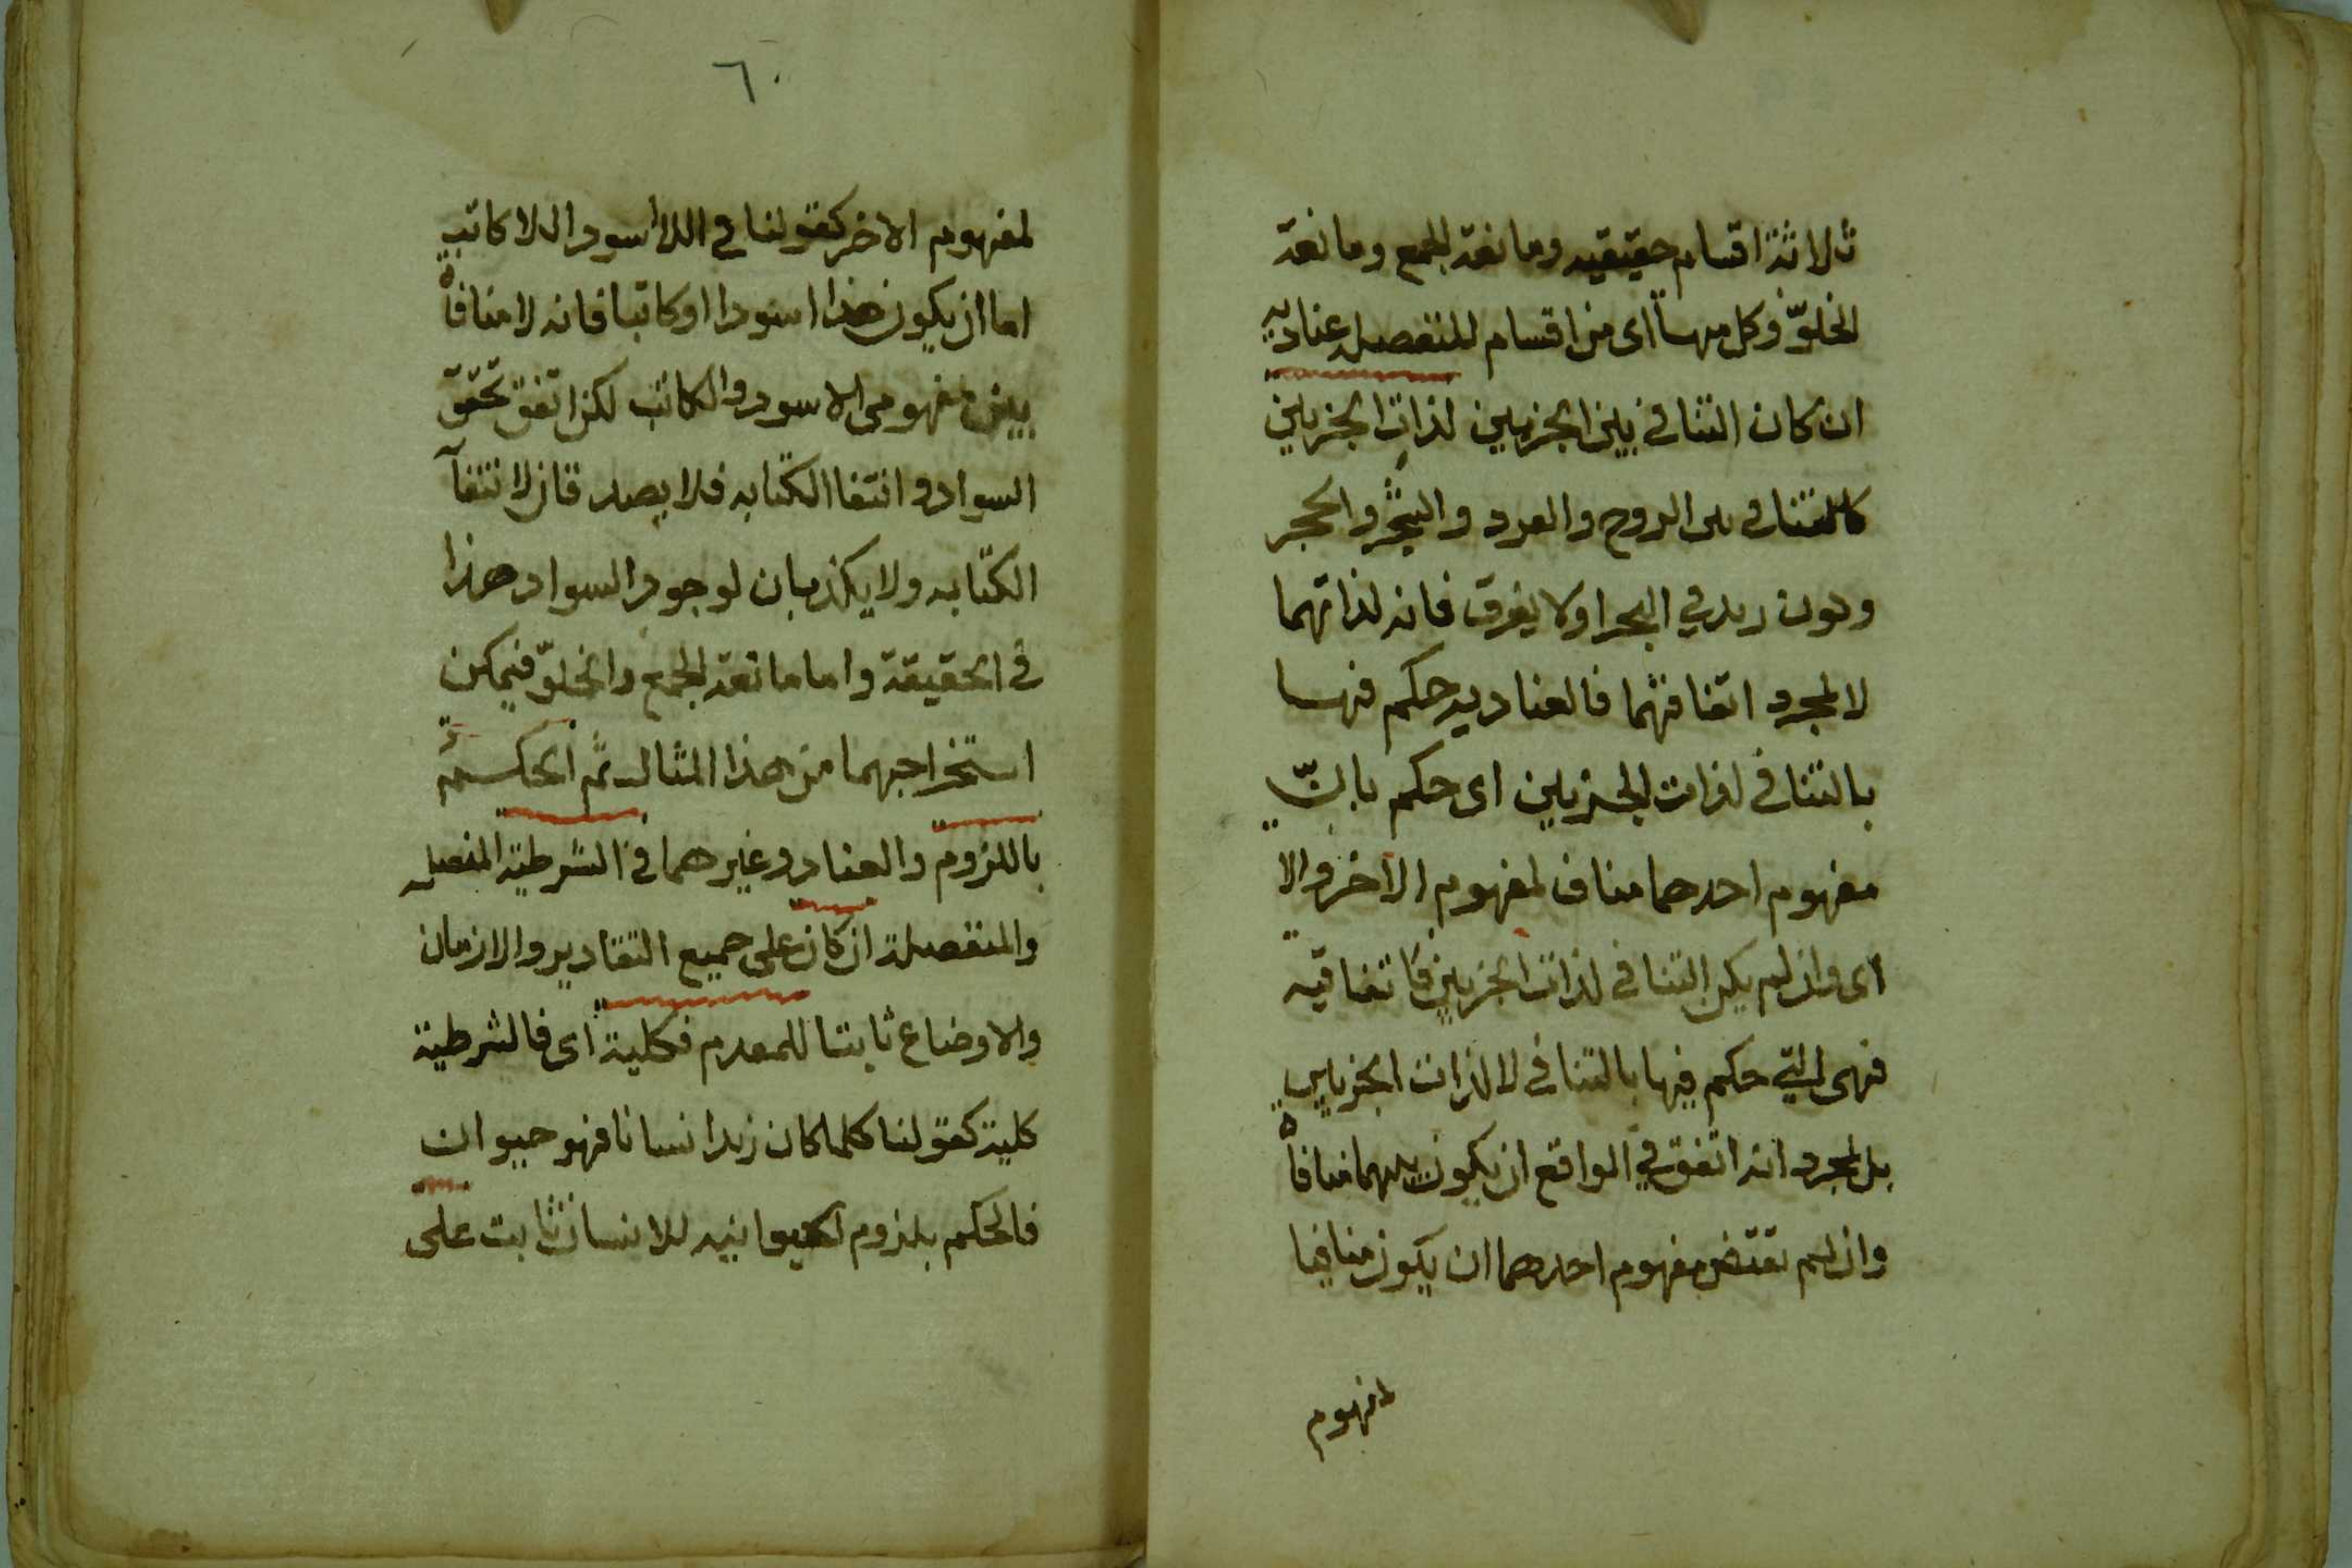 ثلاثة اقسام حقيقيه ومانعة الجمع ومانعة
الخلوّ وكل منها اى من اقسام المنفصله عناديه
ان كان التنافى بين الجزيين لذات الجزيين
كالتنافى بين الزوج والفرد والشجر والحجر
وكون زيد في البحر او لا يغرق فانه لذاتهما
لا لمجرد اتفاقهما فالعناديه حكم فيها
بالتنافى لذات الجزيين اى حكم بانّ
مفهوم احدهما مناف لمفهوم الاخر والا
اى وان لم يكن التنافى لذات الجزيين فاتفاقيه
فهى التي حكم فيها بالتنافى لا لذات الجزيين
بل لمجرد انه اتفق في الواقع ان يكون بينهما منافاة
وان لم يقتض مفهوم احدهما ان يكون منافيا
لمفهوم
٦٠
لمفهوم الاخر كقولنا في اللا اسود اللا كاتب
اما ان يكون هذا اسودا او كاتبا فانه لا منافاة
بين مفهومى الاسود والكاتب لكن اتفق تحقق
السواد وانتفا الكتابه فلا يصدقان لانتفآ
الكتابه ولا يكذبان لوجود السواد هذا
فى الحقيقة واما مانعة الجمع والخلوّ فيمكن
استخراجهما من هذا المثال ثم الحكم
باللزوم والعناد وغيرهما فى الشرطية المتصله
والمنفصلة ان كان على جميع التقادير والازمان
والاوضاع ثابتا للمقدم فكلية اى فالشرطية
كلية كقولنا كلما كان زيد انسانا فهو حيوان
فالحكم بلزوم الحيوانيه للانسان ثابت على